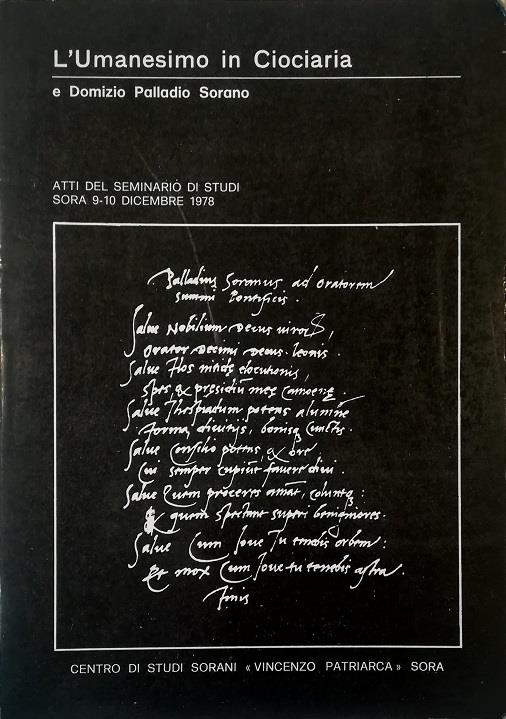 L'Umanesimo in Ciociaria
e Domizio Palladio Sorano
ATTI DEL SEMINARIO DI STUDI
SORA 9-10 DICEMBRE 1978
Palladius Soranus ad Oratorem
summi Pontificis.
Salue Nobilium Decus
Orator Decimi Decus Leonis.
Salue Flos nitidę elocutionis,
Spes, & presidiū meę Camoenę.
Salue Thespiadum potens alumne
Forma, diuitijs, bonisq
Salue Consilio potens, &
Cui semper cupiūt fauere diui.
Salue Quem proceres amāt, coluntq:
& quem spectant superi benigniores.
Salue Cum Ioue Tu tenebis orbem:
Et mox Cum Ioue tu tenebis astra.
Finis
CENTRO DI STUDI SORANI « VINCENZO PATRIARCA » SORA